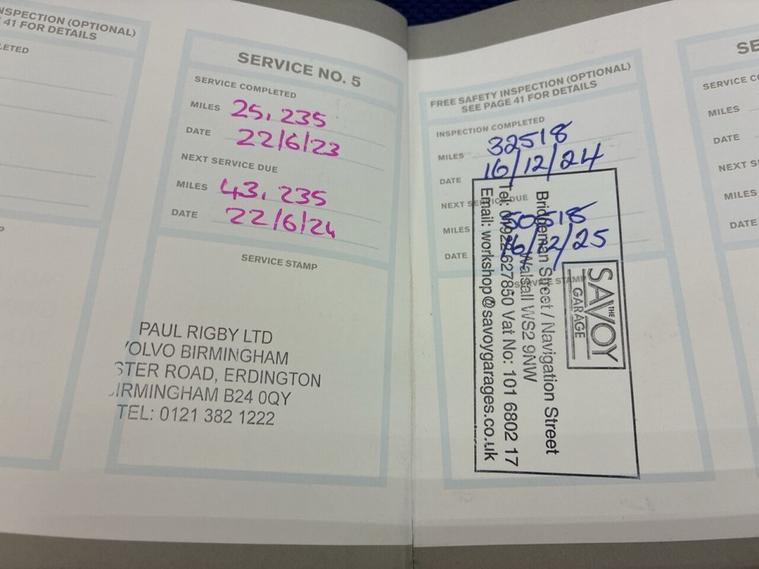 NSPECTION (OPTIONAL)
41 FOR DETAILS
ETED
SERVICE NO. 5
SERVICE COMPLETED
MILES 25,235
DATE 22/6/23
NEXT SERVICE DUE
MILES 43,235
DATE 22/6/24
SERVICE STAMP
PAUL RIGBY LTD
VOLVO BIRMINGHAM
STER ROAD, ERDINGTON
BIRMINGHAM B24 0QY
TEL: 0121 382 1222
FREE SAFETY INSPECTION (OPTIONAL)
SEE PAGE 41 FOR DETAILS
INSPECTION COMPLETED
MILES 32518
DATE 16/12/24
NEXT SERVICE DUE
MILES 50518
DATE 16/12/25
SERVICE STAMP
THE
SAVOY
GARAGE
Bridgeman Street / Navigation Street
Walsall WS2 9NW
Tel: 01922 627850 Vat No: 101 6802 17
Email: workshop@savoygarages.co.uk
SE
SERVICE CO
MILES
DATE
NEXT S
MILES
DATE